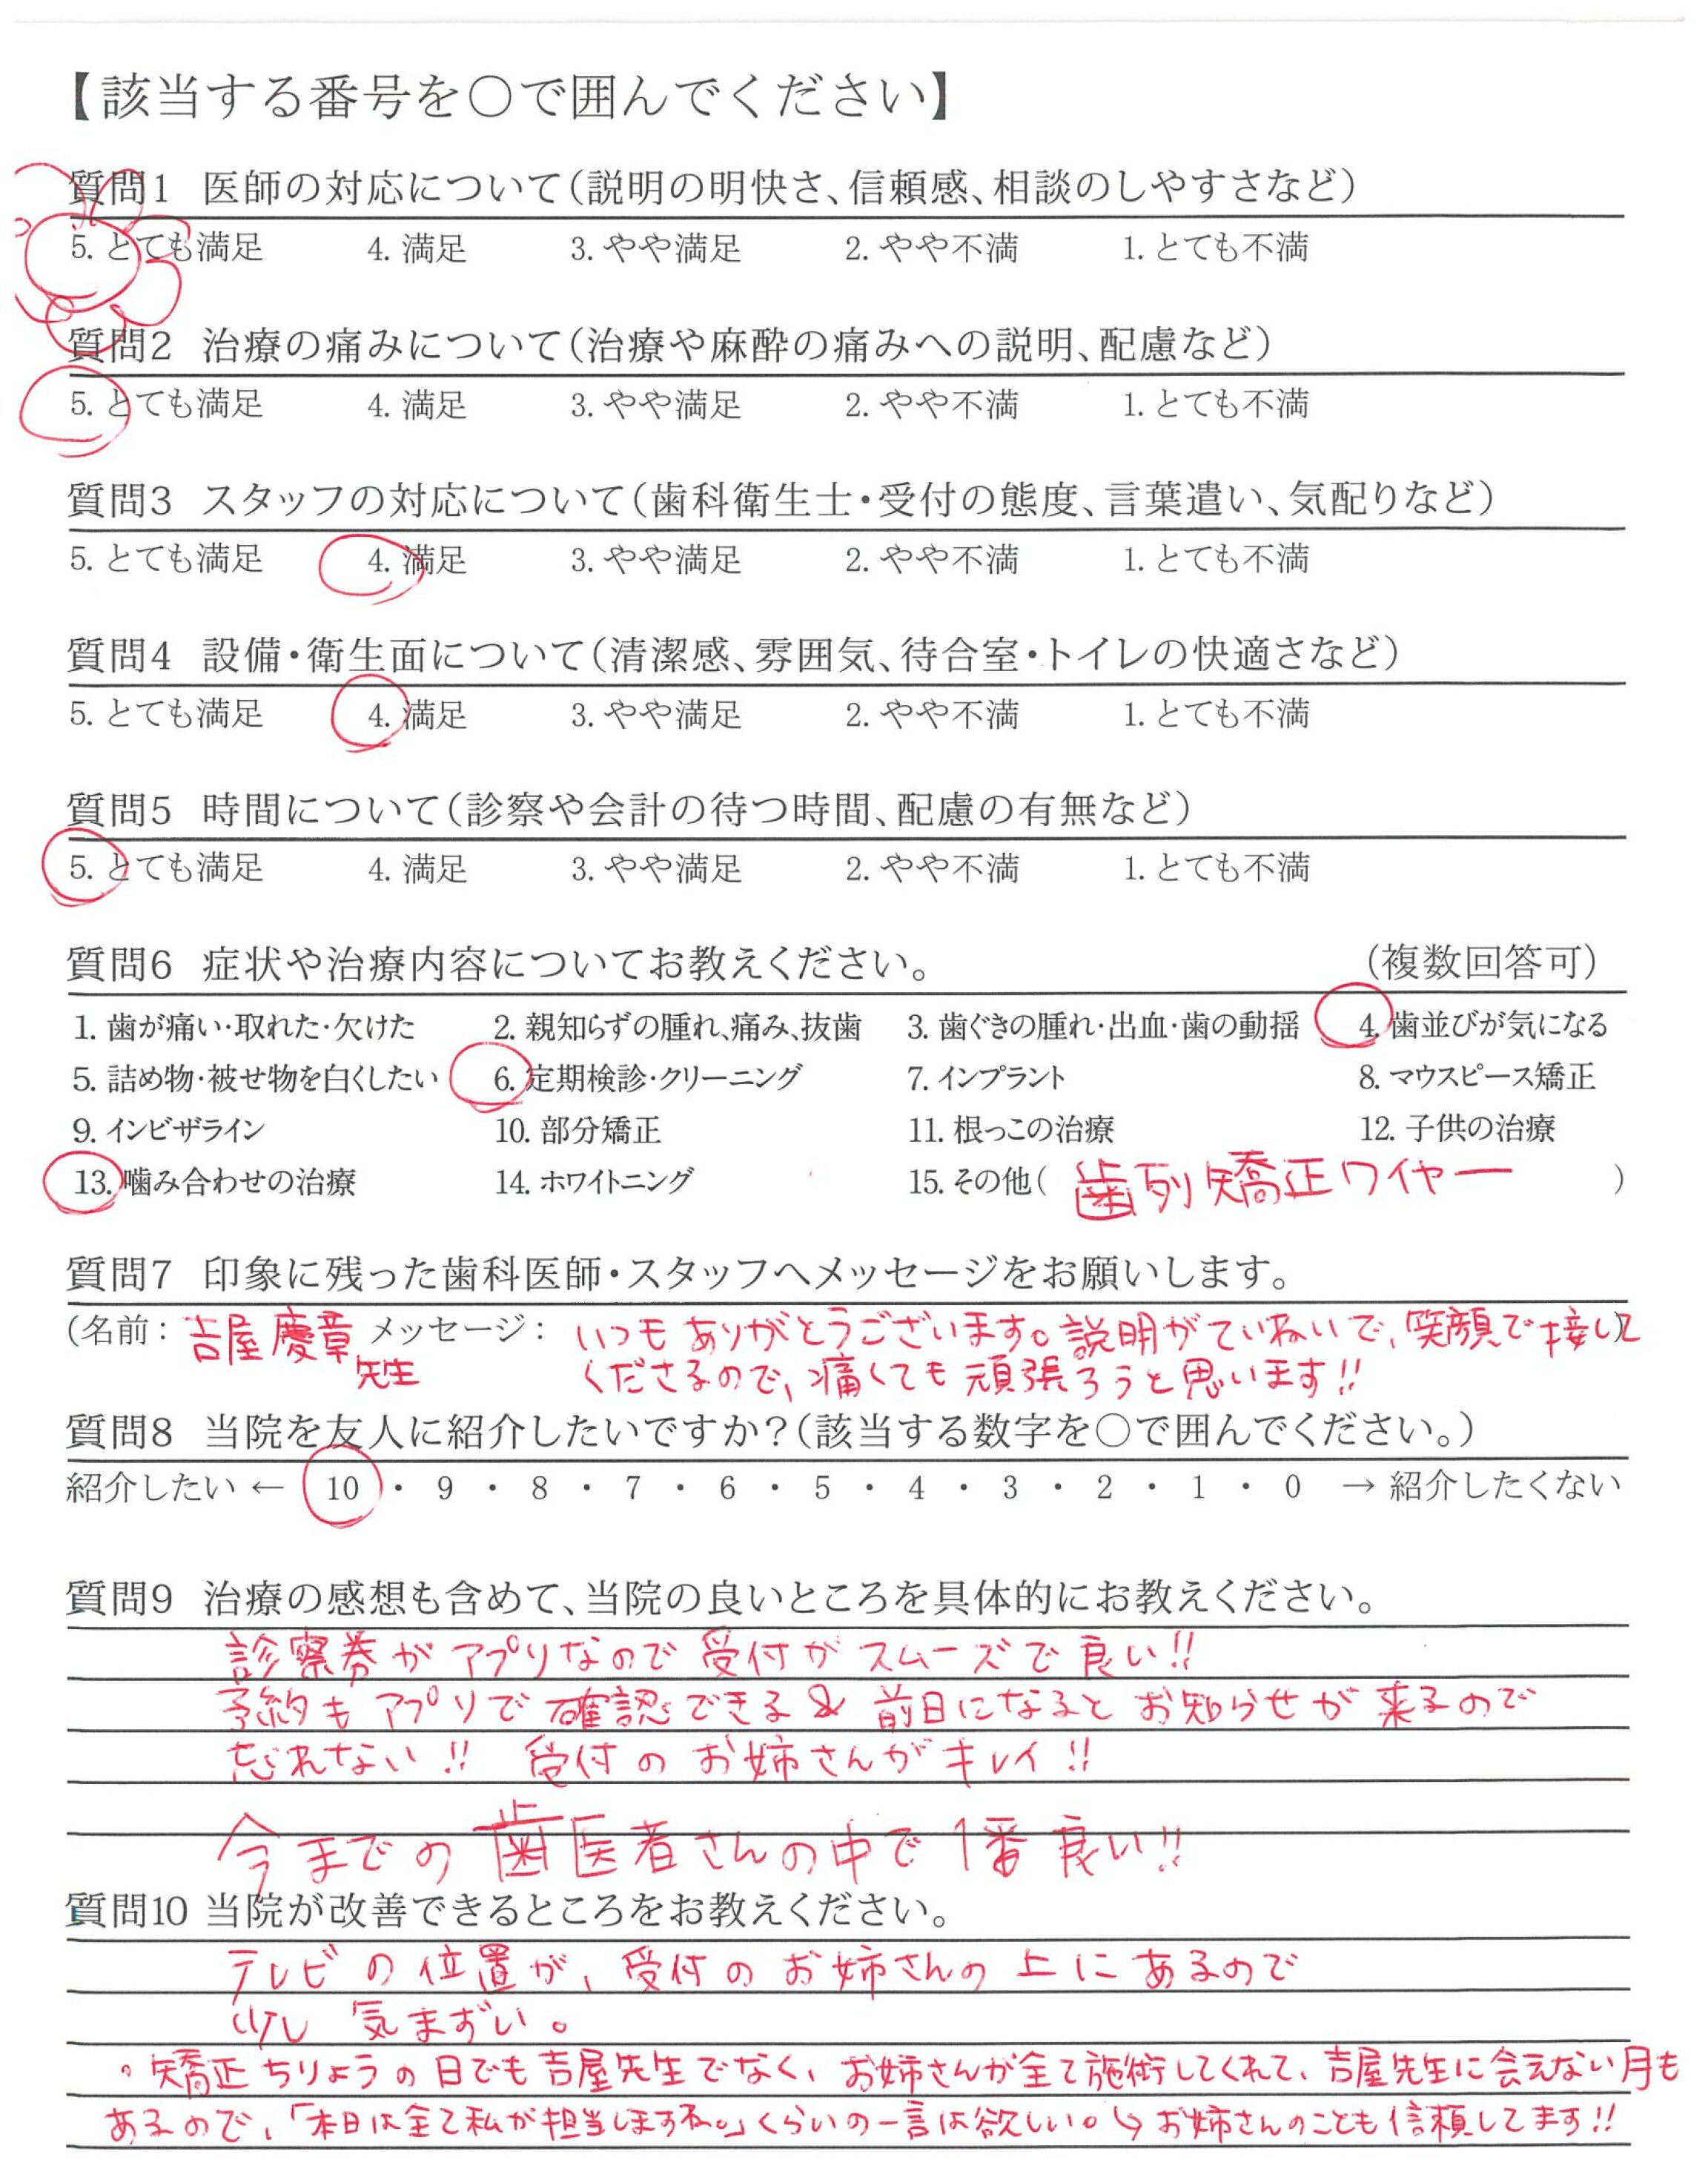 【該当する番号を〇で囲んでください】
質問1 医師の対応について(説明の明快さ、信頼感、相談のしやすさなど)
5. とても満足 4. 満足 3. やや満足 2. やや不満 1. とても不満
質問2 治療の痛みについて(治療や麻酔の痛みへの説明、配慮など)
5. とても満足 4. 満足 3. やや満足 2. やや不満 1. とても不満
質問3 スタッフの対応について(歯科衛生士・受付の態度、言葉遣い、気配りなど)
5. とても満足 4. 満足 3. やや満足 2. やや不満 1. とても不満
質問4 設備・衛生面について(清潔感、雰囲気、待合室・トイレの快適さなど)
5. とても満足 4. 満足 3. やや満足 2. やや不満 1. とても不満
質問5 時間について(診察や会計の待つ時間、配慮の有無など)
5. とても満足 4. 満足 3. やや満足 2. やや不満 1. とても不満
質問6 症状や治療内容についてお教えください。 (複数回答可)
1. 歯が痛い・取れた・欠けた 2. 親知らずの腫れ、痛み、抜歯 3. 歯ぐきの腫れ・出血・歯の動揺 4. 歯並びが気になる
5. 詰め物・被せ物を白くしたい 6. 定期検診・クリーニング 7. インプラント 8. マウスピース矯正
9. インビザライン 10. 部分矯正 11. 根っこの治療 12. 子供の治療
13. 噛み合わせの治療 14. ホワイトニング 15. その他( 歯列矯正ワイヤー )
質問7 印象に残った歯科医師・スタッフへメッセージをお願いします。
(名前: 吉屋 慶章 メッセージ: いつもありがとうございます。説明がていねいで、笑顔で接して)
先生 くださるので、痛くても頑張ろうと思います!!
質問8 当院を友人に紹介したいですか?(該当する数字を〇で囲んでください。)
紹介したい ← 10 ・ 9 ・ 8 ・ 7 ・ 6 ・ 5 ・ 4 ・ 3 ・ 2 ・ 1 ・ 0 → 紹介したくない
質問9 治療の感想も含めて、当院の良いところを具体的にお教えください。
診察券がアプリなので受付がスムーズで良い!!
予約もアプリで確認できる & 前日になるとお知らせが来るので
忘れない!! 受付のお姉さんがキレイ!!
今までの歯医者さんの中で1番良い!!
質問10 当院が改善できるところをお教えください。
テレビの位置が、受付のお姉さんの上にあるので
少し気まずい。
。矯正ちりょうの日でも吉屋先生でなく、お姉さんが全て施術してくれて、吉屋先生に会えない月も
あるので、「本日は全て私が担当しますね。」くらいの一言は欲しい。↳お姉さんのことも信頼してます!!